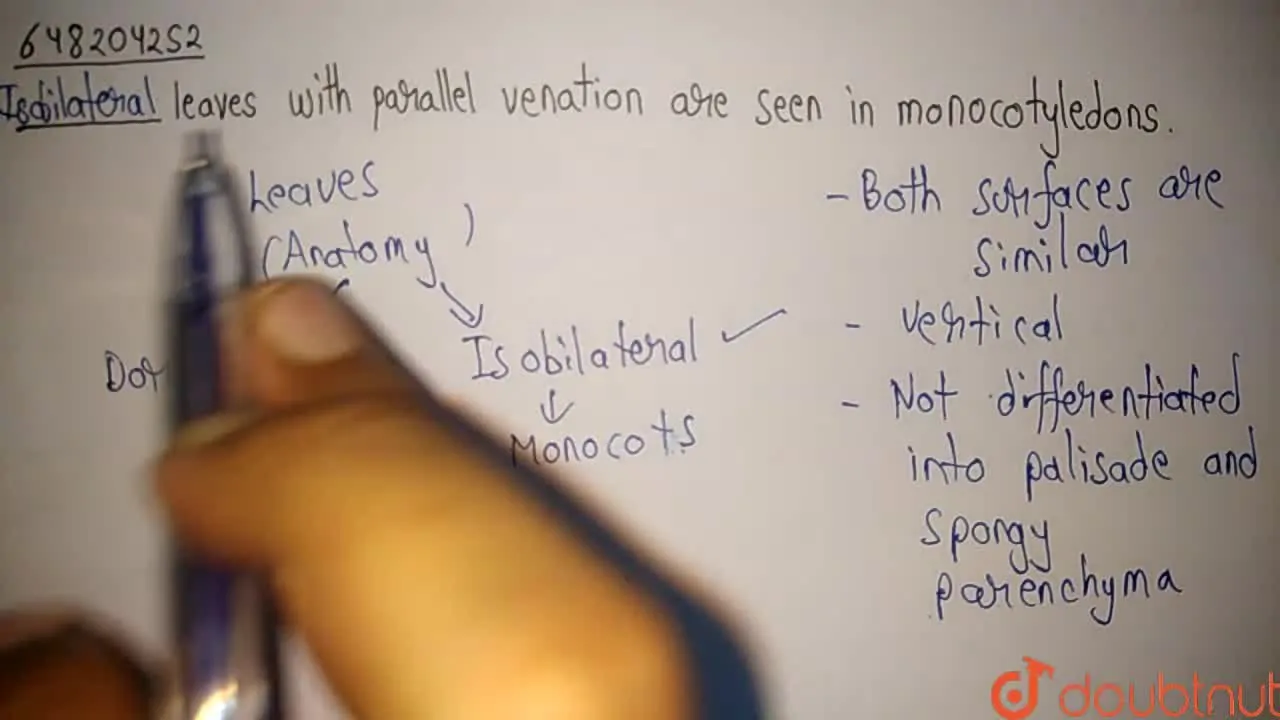 648204252
Isobilateral leaves with parallel venation are seen in monocotyledons.
Leaves
(Anatomy)
Isobilateral
Monocots
- Both surfaces are
similar
- vertical
- Not differentiated
into palisade and
spongy
parenchyma
doubtnut